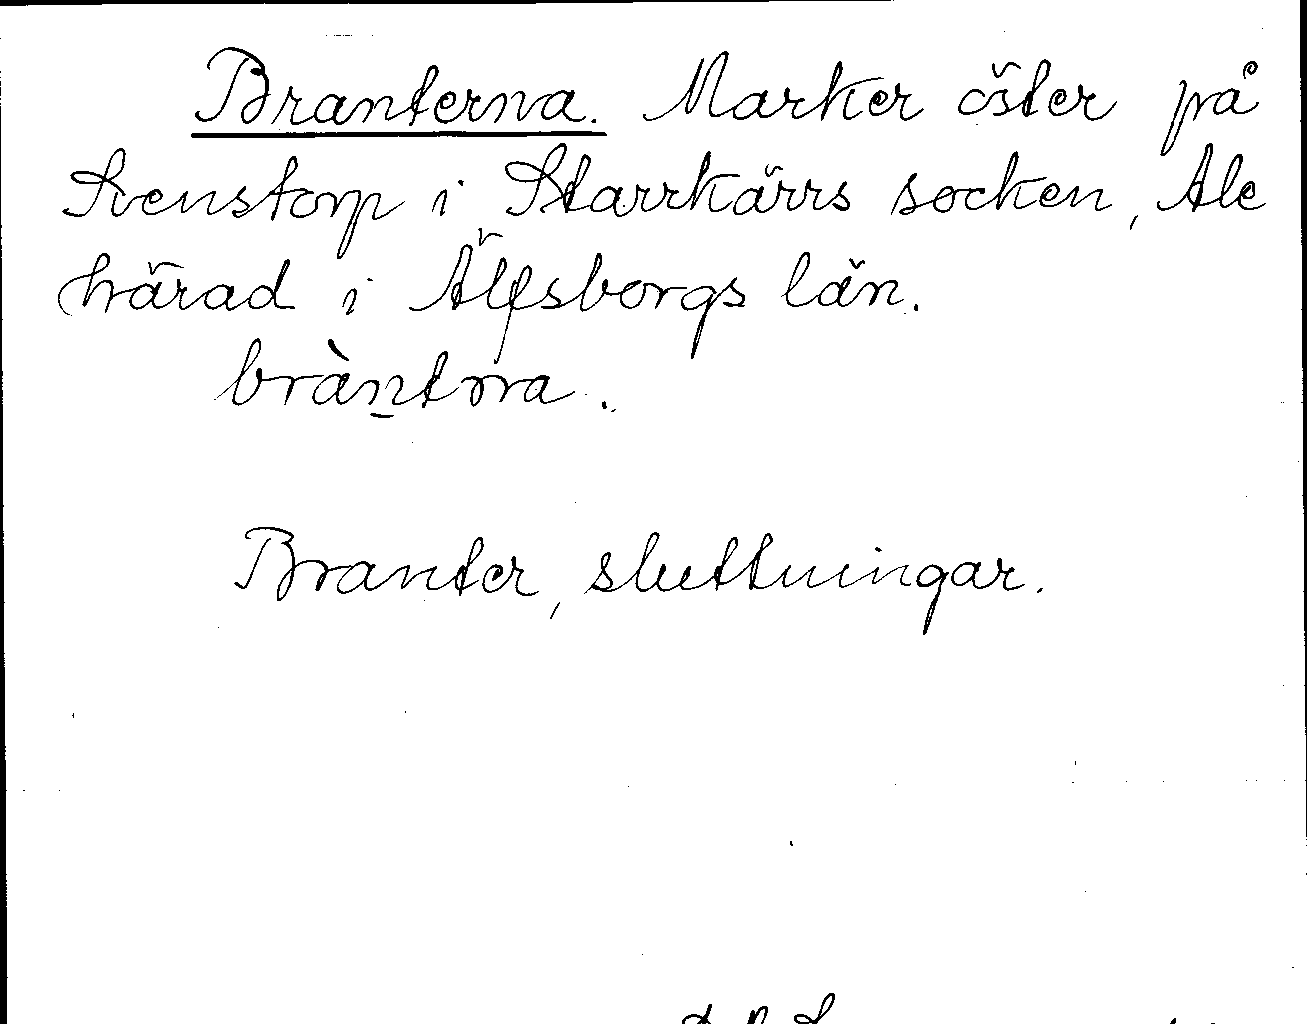 Branterna. Marker öster på
Svenstorp i Starrkärrs socken, Ale
härad i Älfsborgs län.
bràn̲tnͬa.

Branter, sluttningar.